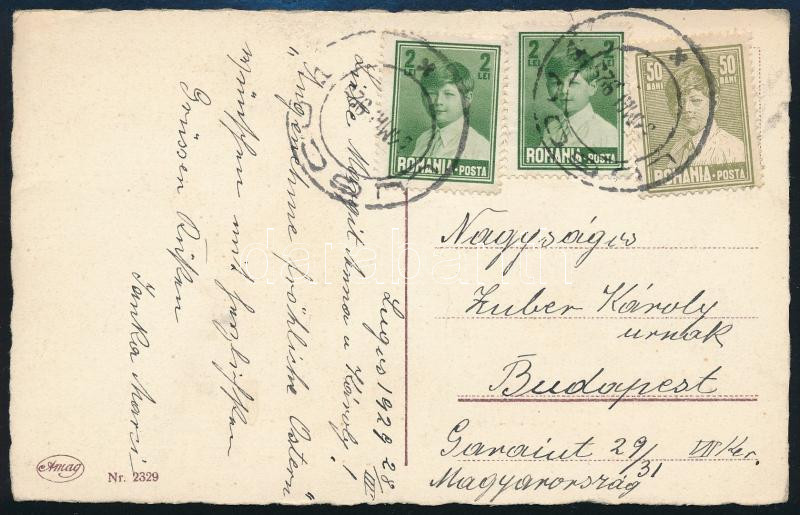 2 2
LEI
ROMANIA-POSTA
2 2
LEI LEI
ROMANIA-POSTA
50 50
BANI BANI
ROMANIA-POSTA
Lugos 1929 28/III
Liebe Margit Anna u Károly!
"Angenehme fröhliche Ostern"
wünschen mit herzlichen
Grüssen Küssen
Janka Marci
Nagyságos
Zuber Károly
urnak
Budapest
Garai ut 29/31 VII Ker.
Magyarország
Amag
Nr. 2329
darabanth.com